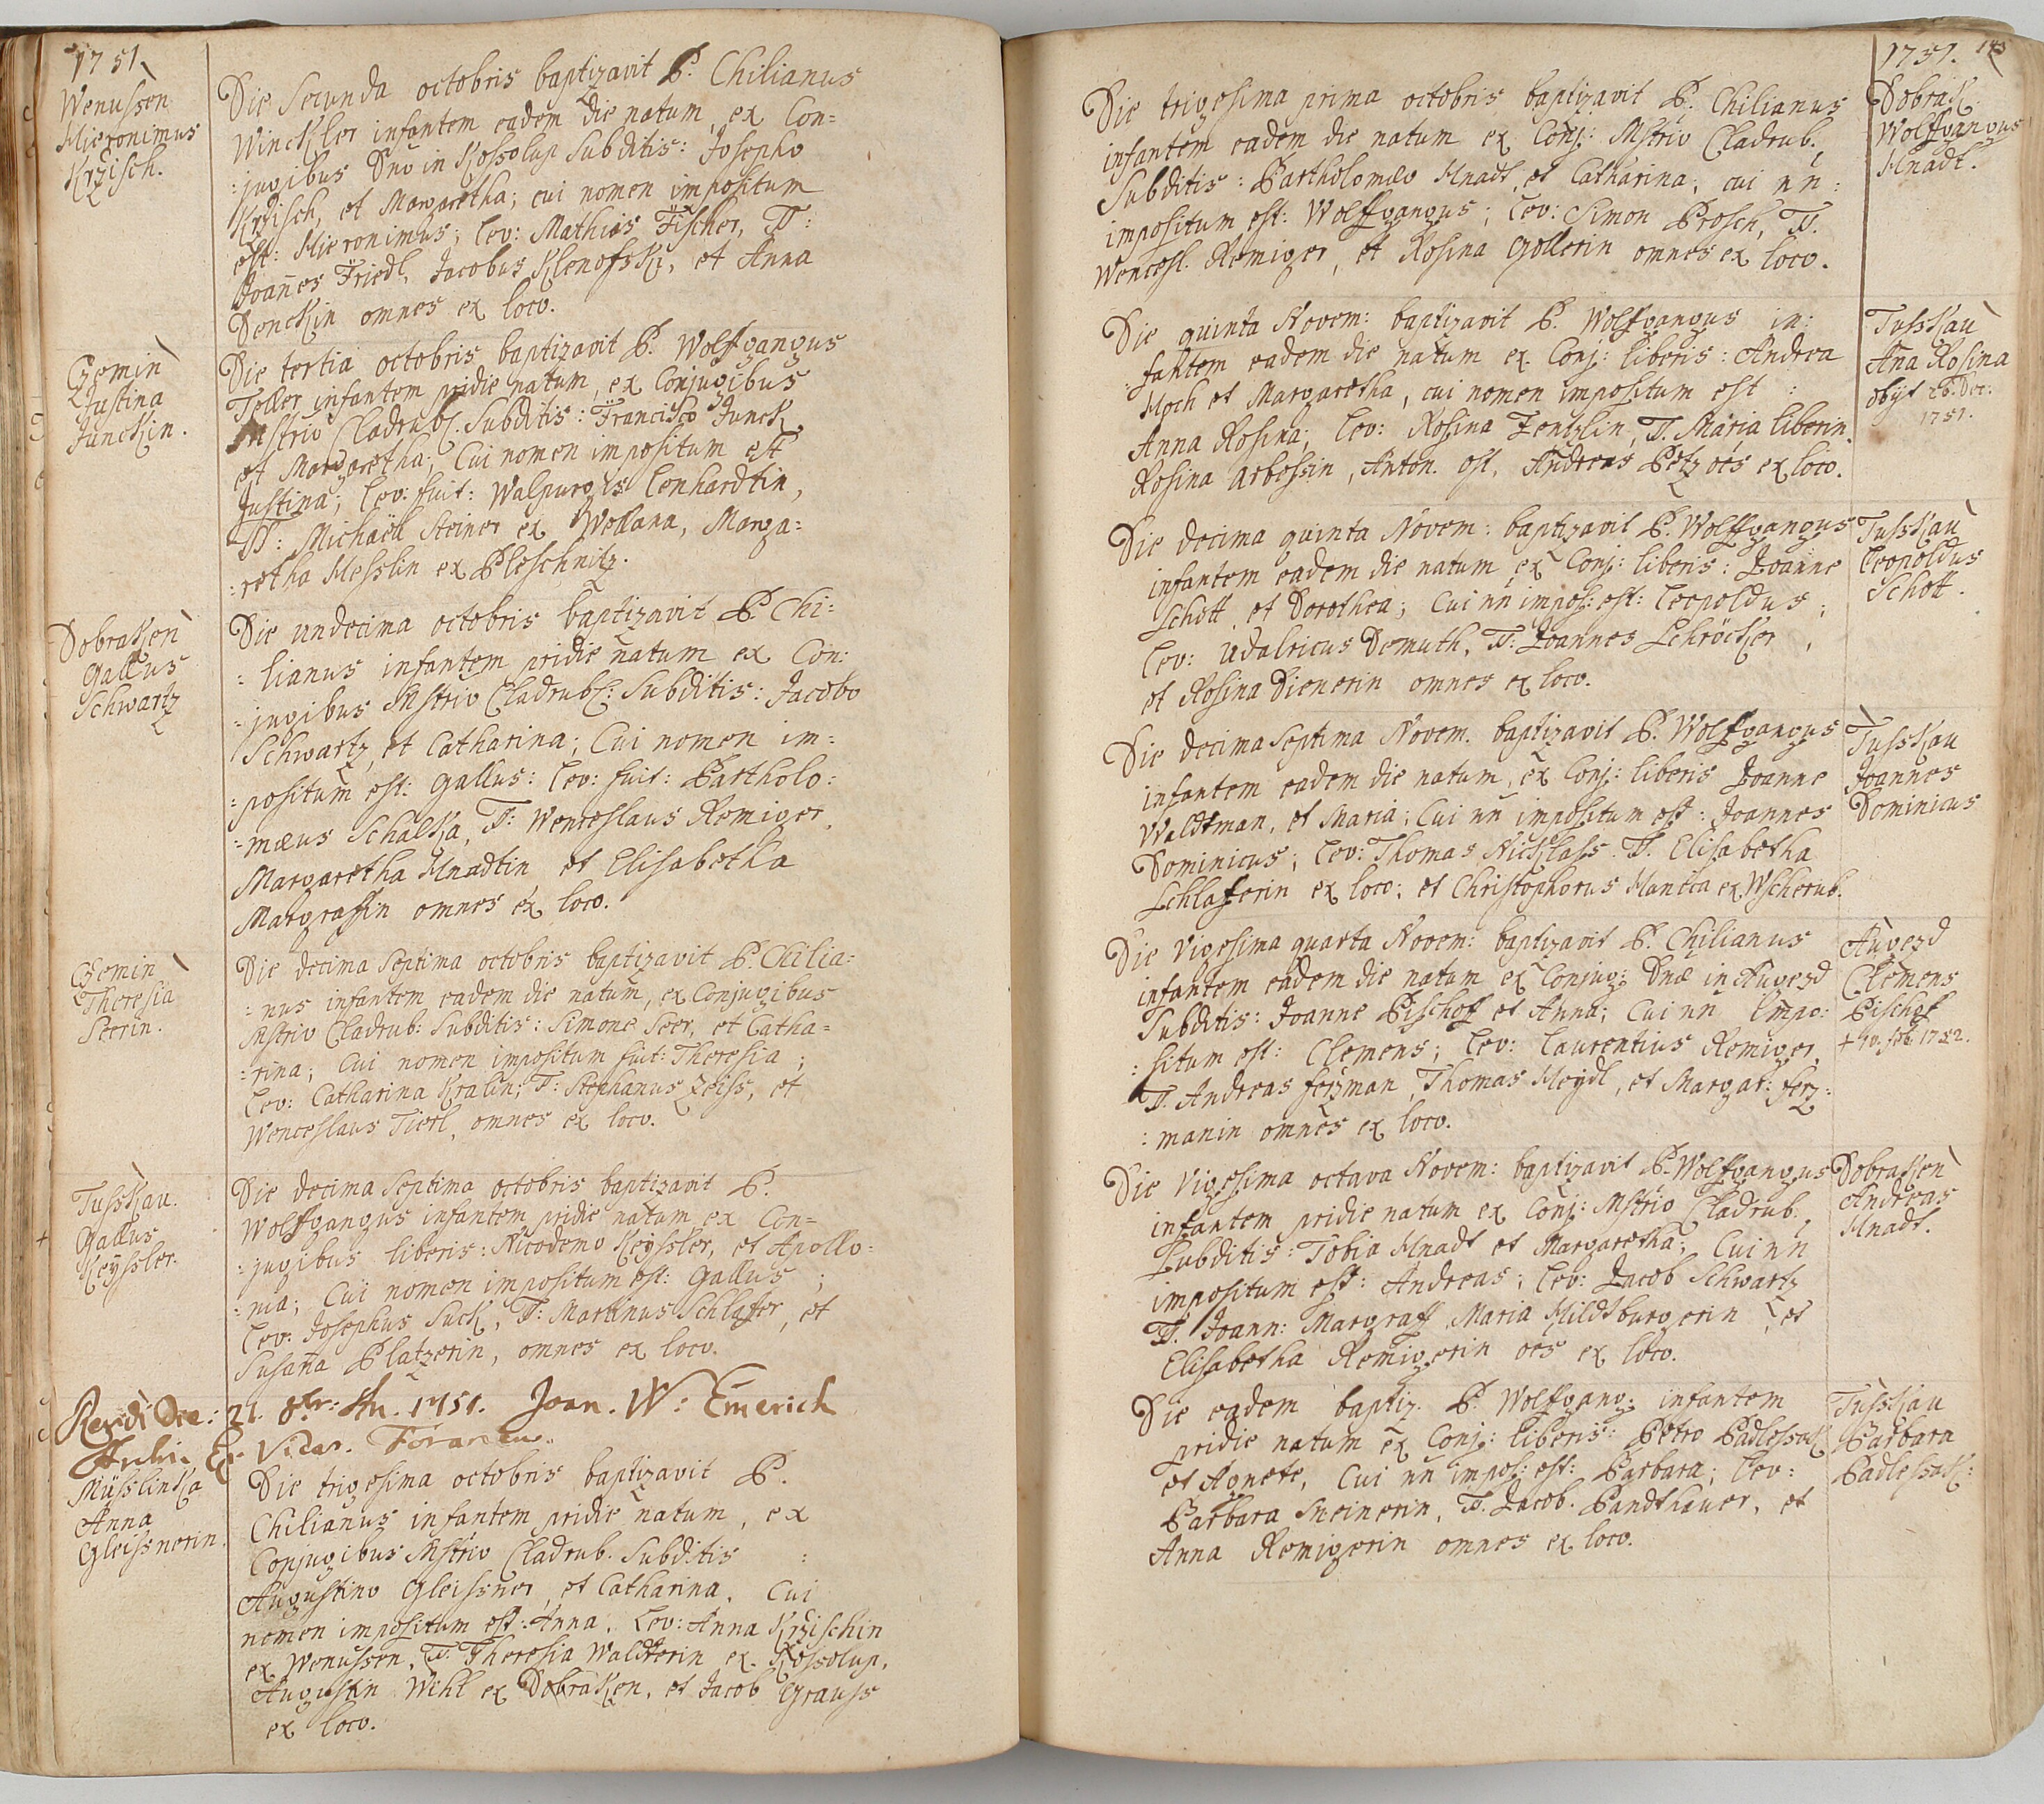 1751.
Wenussen
Hieronimus
Krzisch.
Die Secunda octobris baptizavit P. Chilianus
Winckler infantem eadem die natum, ex Con=
:jugibus Dnio in Kossolup Subditis: Josepho
Krzisch, et Margaretha; cui nomen impositum
est: Hieronimus; Lev: Mathias Fischer, T:
Joannes Friedl, Jacobus Klenofski, et Anna
Denckin omnes ex loco.
Czemin
Justina
Junckin.
Die tertia octobris baptizavit P. Wolfgangus
Toller infantem pridie natum, ex Conjugibus
Mstrio Cladrub. Subditis: Francisco Junck,
et Margaretha; Cui nomen impositum est
Justina; Lev: fuit: Walpurgis Lenhardtin,
T: Michaël Steiner ex Wellana, Marga=
:retha Hesslin ex Pleschnitz.
Dobraken
Gallus
Schwartz
Die undecima octobris baptizavit P. Chi=
:lianus infantem pridie natum ex Con:
=jugibus Mstrio Cladrub: Subditis: Jacobo
Schwartz, et Catharina; Cui nomen im=
=positum est: Gallus: Lev: fuit: Bartholo:
=mæus Schalka, T: Wenceslaus Remiger,
Margaretha Hnadtin et Elisabetha
Margraffin omnes ex loco.
Czemin
Theresia
Seerin.
Die decima Septima octobris baptizavit P. Chilia=
:nus infantem eadem die natum, ex Conjugibus
Mstrio Cladrub: Subditis: Simone Seer, et Catha=
:rina; Cui nomen impositum fuit: Theresia;
Lev: Catharina Kralin, T: Stephanus Zeiss, et
Wenceslaus Tierl, omnes ex loco.
Tusskau.
Gallus
Keyssler.
Die decima Septima octobris baptizavit P.
Wolfgangus infantem pridie natum ex Con=
:jugibus liberis: Nicodemo Keyssler, et Apollo=
:nia; Cui nomen impositum est: Gallus;
Lev: Josephus Suck, T: Martinus Schlafer, et
Susaña Platzerin, omnes ex loco.
21. 8br: An. 1751. Joan. W: Emerich
Vicar. Foraneus
Müsslinka
Anna
Gleissnerin.
Die trigesima octobris baptizavit P.
Chilianus infantem pridie natum, ex
Conjugibus Mstrio Cladrub. Subditis :
Augustino Gleissner, et Catharina. Cui
nomen impositum est: Anna. Lev: Anna Krzischin
ex Wenussen, T: Theresia Waldterin ex Kossolup,
Augustin Wihl ex Dobraken, et Jacob Grauss
ex loco.
1751. 143
Dobrak.
Wolfgangus
Hnadt.
Die trigesima prima octobris baptizavit P. Chilianus
infantem eadem die natum ex Conj: Mstrio Cladrub.
Subditis: Bartholomæo Hnadt, et Catharina; cui nn:
impositum est: Wolfgangus; Lev: Simon Prosch, T.
Wencesl. Remiger, et Rosina Gollerin omnes ex loco.
Tusskau
Aña Rosina
obijt 26. Dec:
1751.
Die quinta Novem: baptizavit P. Wolfgangus in:
:fantem eadem die natum ex Conj: liberis: Andrea
Hoch et Margaretha, cui nomen impositum est :
Anna Rosina; Lev: Rosina Zentzlin, T. Maria Liberin,
Rosina Arbessin, Anton. Ost, Andreas Petz oēs ex loco.
Tusskau
Leopoldus
Schott.
Die decima quinta Novem: baptizavit P. Wolfgangus
infantem eadem die natum ex Conj: liberis: Joañne
Schott, et Dorothea; Cui nn impos: est: Leopoldus;
Lev: Udalricus Demuth, T: Joannes Schröcker,
et Rosina Dienerin omnes ex loco.
Tusskau
Joannes
Dominicus
Die decima Septima Novem. baptizavit P. Wolfgangus
infantem eadem die natum, ex Conj: liberis Joanne
Waldtman, et Maria; Cui nn impositum est: Joannes
Dominicus; Lev: Thomas Nicklass. T. Elisabetha
Schlaferin ex loco; et Christophorus Hancka ex Wscherub.
Augezd
Clemens
Pischof
+ 10. feb. 1752.
Die Vigesima quarta Novem: baptizavit P. Chilianus
infantem eadem die natum ex Conjug: Dnæ in Augezd
Subditis: Joanne Pischof et Anna; Cui nn impo:
:situm est: Clemens; Lev: Laurentius Remiger,
T. Andreas ferzman, Thomas Heydl, et Margar: ferz:
:manin omnes ex loco.
Dobraken
Andreas
Hnadt.
Die Vigesima octava Novem: baptizavit P. Wolfgangus
infantem pridie natum ex Conj: Mstrio Cladrub.
Subditis: Tobia Hnadt et Margaretha; Cui nn
impositum est: Andreas; Lev: Jacob Schwartz
T. Joann: Margraff, Maria Hildtburgerin, et
Elisabetha Remigerin oēs ex loco.
Tusskau
Barbara
Padlessak:
Die eadem baptiz. P. Wolfgang: infantem
pridie natum ex Conj: liberis: Petro Padlessak
et Agnete, Cui nn impos: est: Barbara; Lev:
Barbara Steinerin, T. Jacob. Pandthauer, et
Anna Remigerin omnes ex loco.